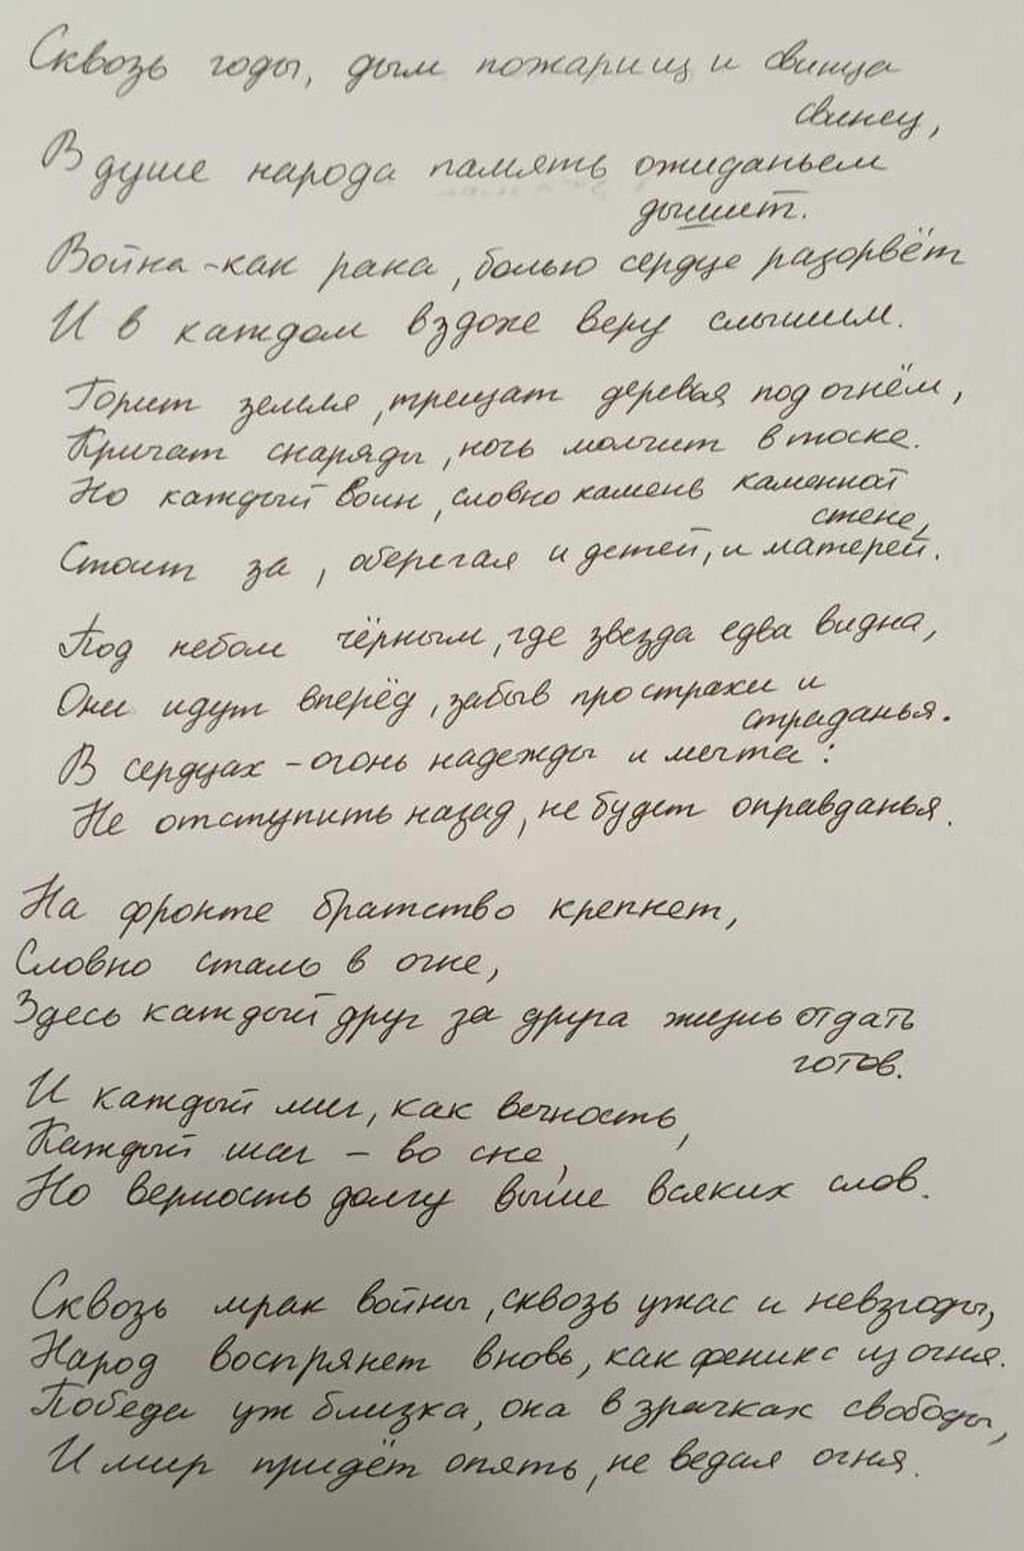 Сквозь годы, дым пожарищ и свинца
свинец,
В душе народа память ожиданьем
дышит.
Война - как рака, болью сердце разорвёт
И в каждом вздохе веру слышим.
Горит земля, трещат деревья под огнём,
Кричат снаряды, ночь молчит в тоске.
Но каждый воин, словно камень каменной
стене,
Стоит за, оберегая и детей, и матерей.
Под небом чёрным, где звезда едва видна,
Они идут вперёд, забыв про страхи и
страданья.
В сердцах - огонь надежды и мечта:
Не отступить назад, не будет оправданья.
На фронте братство крепнет,
Словно сталь в огне,
Здесь каждый друг за друга жизнь отдать
готов.
И каждый миг, как вечность,
Каждый шаг - во сне,
Но верность долгу выше всяких слов.
Сквозь мрак войны, сквозь ужас и невзгоды,
Народ воспрянет вновь, как феникс из огня.
Победа уж близка, она в зрачках свободы,
И мир придёт опять, не ведая огня.